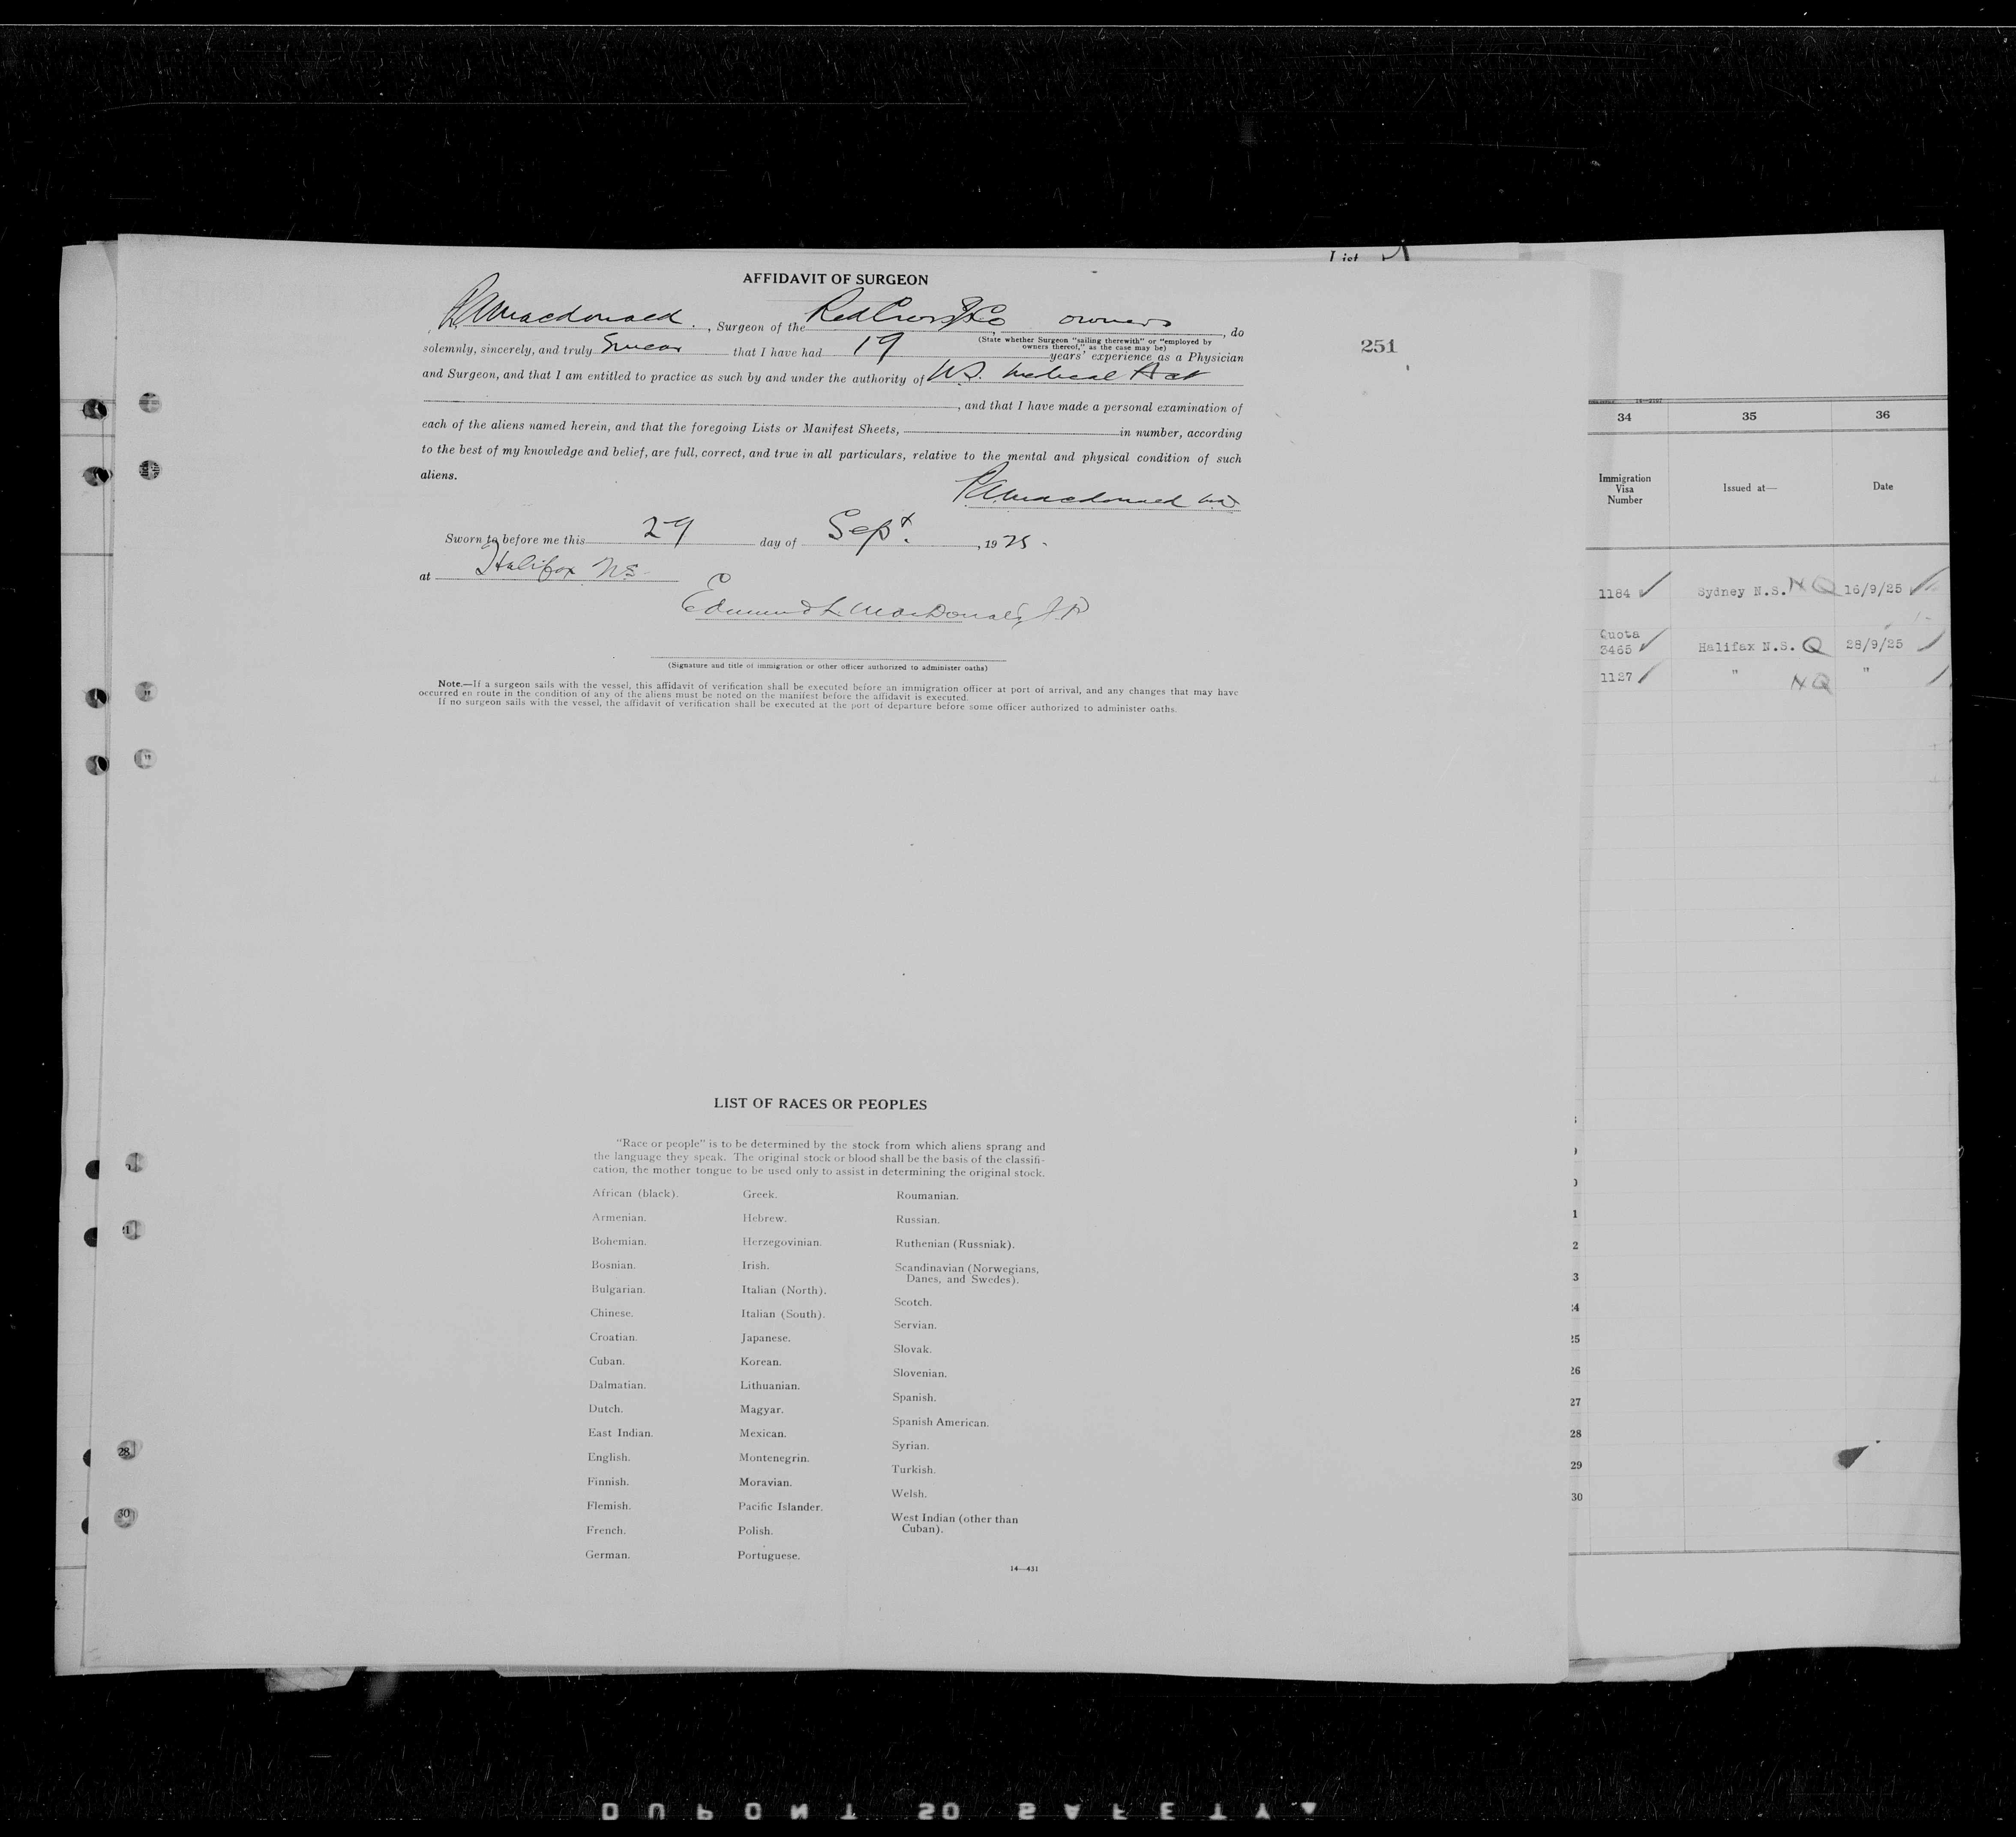 List
AFFIDAVIT OF SURGEON
Macdonald, Surgeon of the Red Cross owners, do
(State whether Surgeon "sailing therewith" or "employed by
owners thereof," as the case may be)
solemnly, sincerely, and truly Swear that I have had 19 years' experience as a Physician
and Surgeon, and that I am entitled to practice as such by and under the authority of N.S. Medical Act
, and that I have made a personal examination of
each of the aliens named herein, and that the foregoing Lists or Manifest Sheets, in number, according
to the best of my knowledge and belief, are full, correct, and true in all particulars, relative to the mental and physical condition of such
aliens.
Macdonald M.D.
Sworn to before me this 29 day of Sept., 1925.
at Halifax NS
Edmund L MacDonald, J P
(Signature and title of immigration or other officer authorized to administer oaths)
Note.—If a surgeon sails with the vessel, this affidavit of verification shall be executed before an immigration officer at port of arrival, and any changes that may have
occurred en route in the condition of any of the aliens must be noted on the manifest before the affidavit is executed.
If no surgeon sails with the vessel, the affidavit of verification shall be executed at the port of departure before some officer authorized to administer oaths.
251
34 35 36
Immigration
Visa
Number
Issued at—
Date
1184 Sydney N.S. NQ 16/9/25
Quota
3465 Halifax N.S. Q 28/9/25
1127 " NQ "
LIST OF RACES OR PEOPLES
"Race or people" is to be determined by the stock from which aliens sprang and
the language they speak. The original stock or blood shall be the basis of the classifi-
cation, the mother tongue to be used only to assist in determining the original stock.
African (black).
Armenian.
Bohemian.
Bosnian.
Bulgarian.
Chinese.
Croatian.
Cuban.
Dalmatian.
Dutch.
East Indian.
English.
Finnish.
Flemish.
French.
German.
Greek.
Hebrew.
Herzegovinian.
Irish.
Italian (North).
Italian (South).
Japanese.
Korean.
Lithuanian.
Magyar.
Mexican.
Montenegrin.
Moravian.
Pacific Islander.
Polish.
Portuguese.
Roumanian.
Russian.
Ruthenian (Russniak).
Scandinavian (Norwegians,
Danes, and Swedes).
Scotch.
Servian.
Slovak.
Slovenian.
Spanish.
Spanish American.
Syrian.
Turkish.
Welsh.
West Indian (other than
Cuban).
14—431
28
30
1
2
3
24
25
26
27
28
29
30
DUPONT SO SAFETY